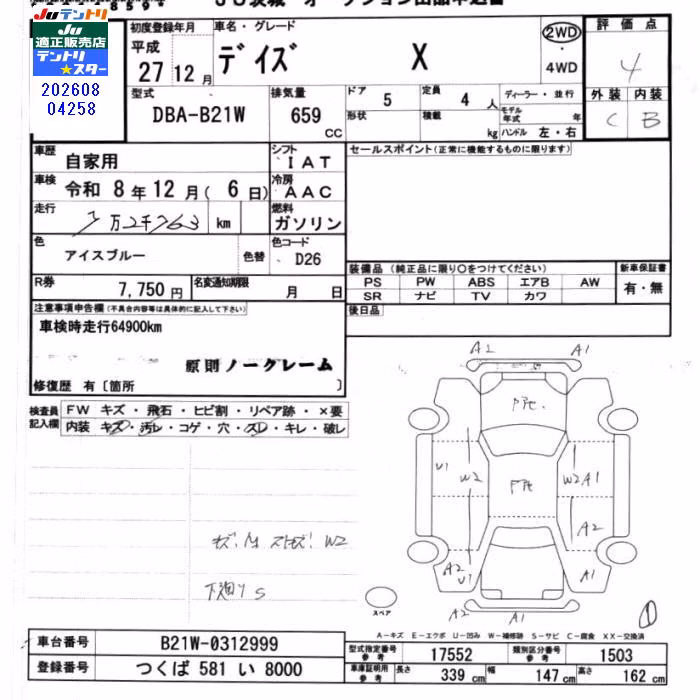 Juテントリ
Ju
適正販売店
テントリ
★スター
202608
04258
初度登録年月
平成
27 12 月
車名・グレード
デイズ X
2WD
・
4WD
評価点
4
外装 内装
C B
型式
DBA-B21W
排気量
659
CC
ドア
5
定員
4 人
形状
積載
kg
ディーラー・並行
モデル年式 年
ハンドル 左・右
車歴
自家用
シフト
IAT
車検
令和 8 年 12 月 ( 6 日)
冷房
AAC
走行
7万2千763 km
燃料
ガソリン
色
アイスブルー
色替
色コード
D26
R券
7,750 円
名変通知期限
月 日
セールスポイント(正常に機能するものに限ります)
装備品 (純正品に限り○をつけてください)
PS PW ABS エアB AW
SR ナビ TV カワ
新車保証書
有・無
後日品
注意事項申告欄(不具合内容等は具体的に記入して下さい)
車検時走行64900km
原則ノークレーム
修復歴 有〔箇所 〕
検査員
記入欄
FW キズ・飛石・ヒビ割・リペア跡・×要
内装 キズ・汚レ・コゲ・穴・スレ・キレ・破レ
A2 A1
U1 W2 W2 A1
A2
A2 U1 A1
A2 A1
W2
下廻り S
スペア
1
A-キズ E-エクボ U-凹み W-補修跡 S-サビ C-腐食 XX-交換済
車台番号
B21W-0312999
登録番号
つくば 581 い 8000
型式指定番号
参考
17552
類別区分番号
参考
1503
車庫証明用
参考
長さ 339 cm 幅 147 cm 高さ 162 cm